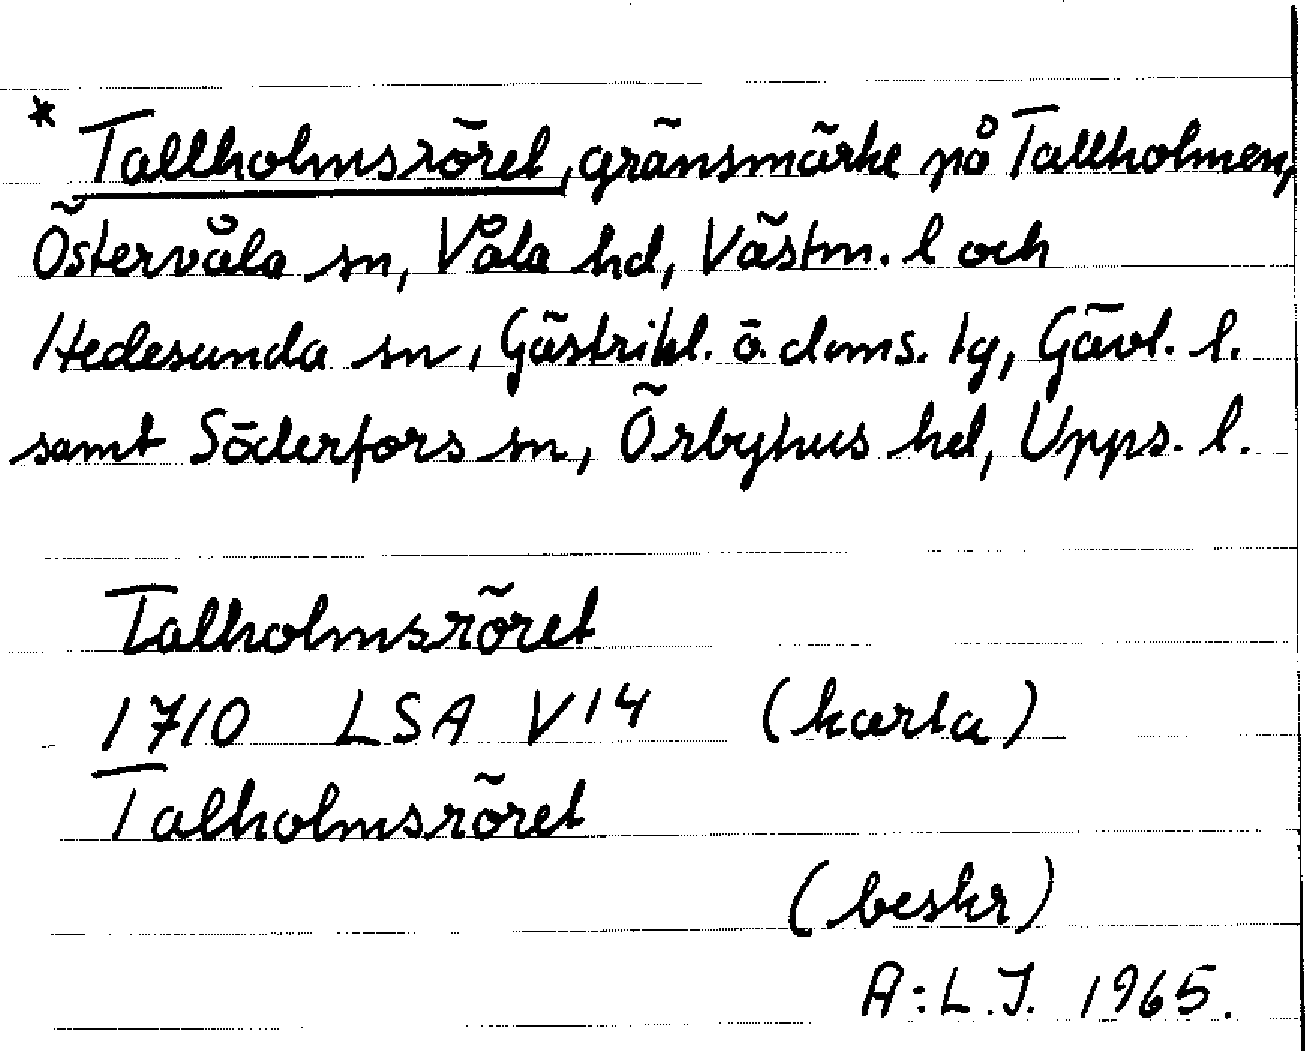 * Tallholmsröret, gränsmärke på Tallholmen,
Östervåla sn, Våla hd, Västm. l och
Hedesunda sn, Gästrikl. ö. doms. tg, Gävl. l.
samt Söderfors sn, Örbyhus hd, Upps. l.
Talholmsröret
1710 LSA V14 (karta)
Talholmsröret
(beskr)
A:L.J. 1965.